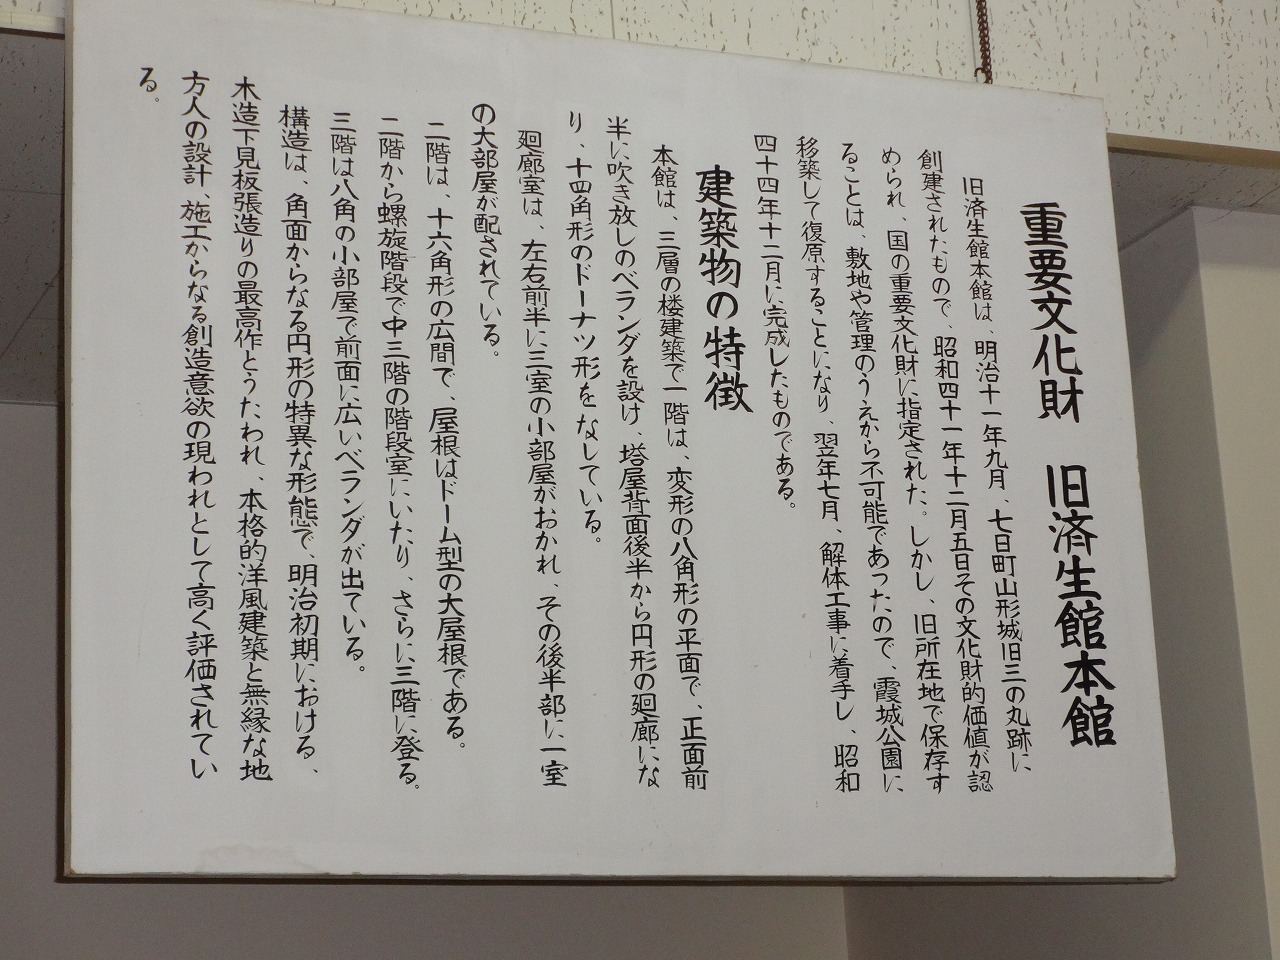 重要文化財　旧済生館本館
旧済生館本館は、明治十一年九月、七日町山形城旧三の丸跡に
創建されたもので、昭和四十一年十二月五日その文化財的価値が認
められ、国の重要文化財に指定された。しかし、旧所在地で保存す
ることは、敷地や管理のうえから不可能であったので、霞城公園に
移築して復原することになり、翌年七月、解体工事に着手し、昭和
四十四年十二月に完成したものである。
建築物の特徴
本館は、三層の楼建築で一階は、変形の八角形の平面で、正面前
半に吹き放しのベランダを設け、塔屋背面後半から円形の廻廊にな
り、十四角形のドーナツ形をなしている。
廻廊室は、左右前半に三室の小部屋がおかれ、その後半部に一室
の大部屋が配されている。
二階は、十六角形の広間で、屋根はドーム型の大屋根である。
二階から螺旋階段で中三階の階段室にいたり、さらに三階に登る。
三階は八角の小部屋で前面に広いベランダが出ている。
構造は、角面からなる円形の特異な形態で、明治初期における、
木造下見板張造りの最高作とうたわれ、本格的洋風建築と無縁な地
方人の設計、施工からなる創造意欲の現われとして高く評価されてい
る。